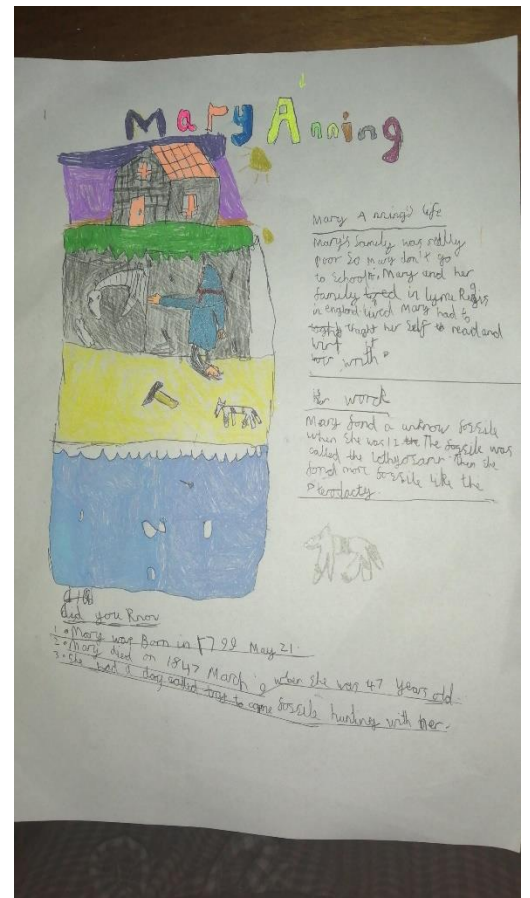 Mary Anning
Mary Anning's life
Mary's family was really
poor so mary don't go
to school. Mary and her
family in lyme Regis
in england lived Mary had to
taught her self to read and
writ it
was worth
Her work
Mary fond a unknow fossile
when she was 12 the The fossile was
called the Icthyosaur. Then she
fond more fossile like the
Pterodacty.
did you Know
1. Mary was Born in 1799 May 21.
2. Mary died on 1847 March 9 when she was 47 years old
3. She had a dog called tray to come fossile hunting with her.